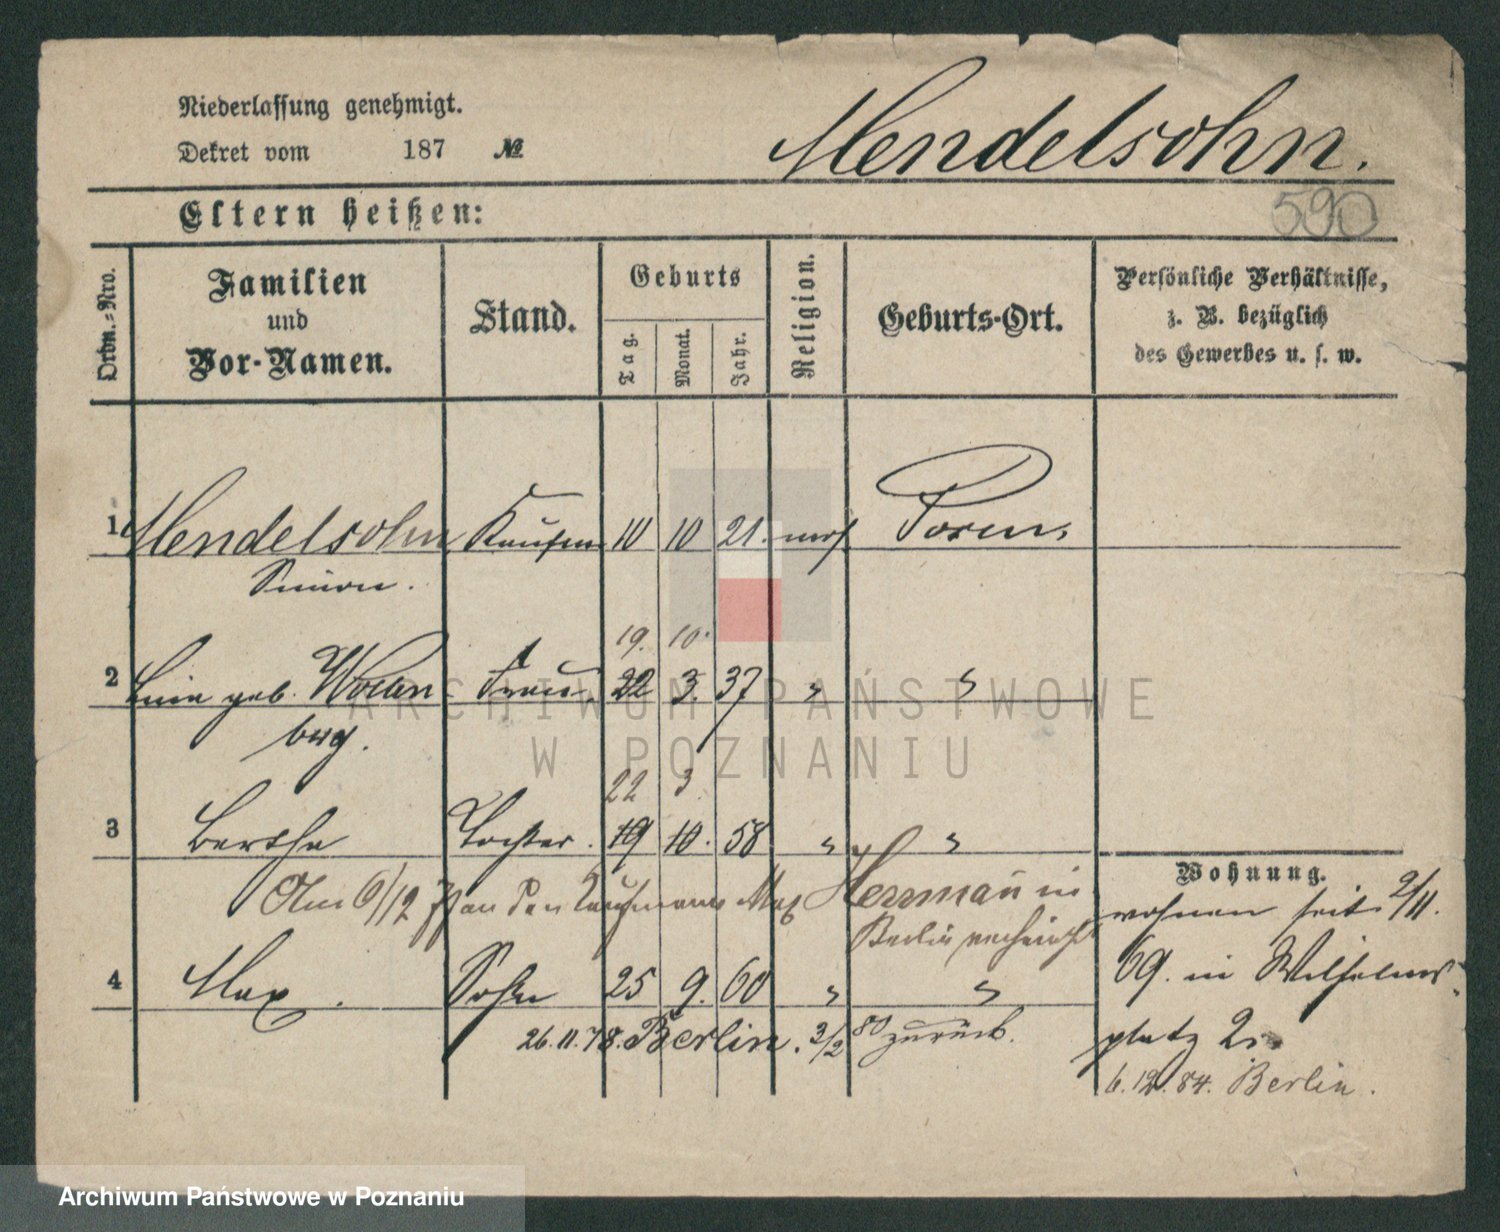 Niederlassung genehmigt.
Dekret vom 187 №
Mendelsohn.
590
Eltern heißen:
Ordn.-Nro.
Familien
und
Vor-Namen.
Stand.
Geburts
Tag.
Monat.
Jahr.
Religion.
Geburts-Ort.
Persönliche Verhältnisse,
z. B. bezüglich
des Gewerbes u. s. w.
1 Mendelsohn Kaufm 10 10 21. mos. Posen
Simon.
19. 10.
2 geb. Frau. 22 3. 37 " "
berg.
22 3.
3 Bertha Tochter. 19 10. 58 " "
Wohnung.
Am 6/12 an den Kaufmann Max Herrmann in
Berlin verheirath
wohnen seit 2/11.
69. in Wilhelms-
4 Max. Sohn 25 9. 60 " "
26.11.78. Berlin. 3/2 80 zurück.
platz 2.
6.12.84. Berlin.
ARCHIWUM PAŃSTWOWE
W POZNANIU
Archiwum Państwowe w Poznaniu